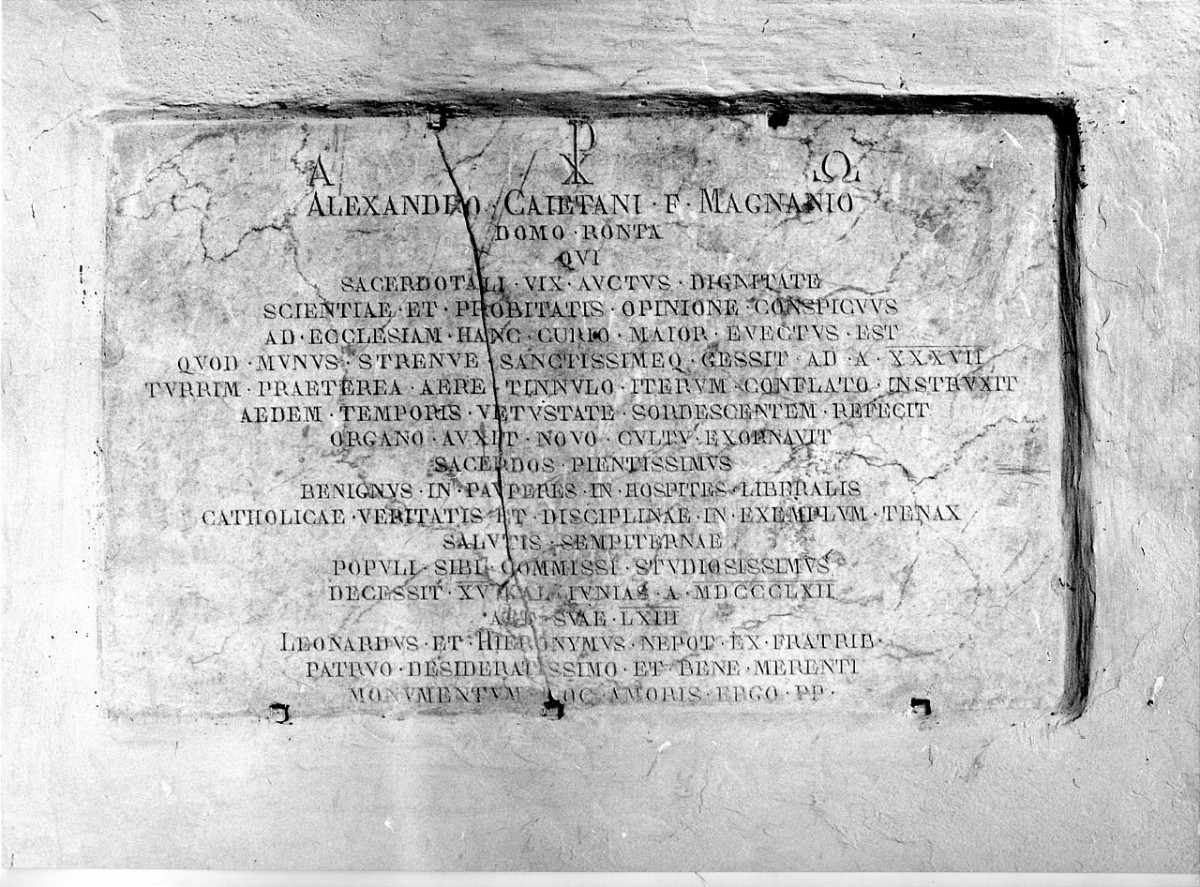 Α ☧ Ω
ALEXANDRO · CAIETANI · F · MAGNANIO
DOMO · RONTA
QVI
SACERDOTALI · VIX · AVCTVS · DIGNITATE
SCIENTIAE · ET · PROBITATIS · OPINIONE · CONSPICVVS
AD · ECCLESIAM · HANC · CURIO · MAIOR · EVECTVS · EST
QVOD · MVNVS · STRENVE · SANCTISSIMEQ · GESSIT · AD · A · XXXVII
TVRRIM · PRAETEREA · AERE · TINNVLO · ITERVM · CONFLATO · INSTRVXIT
AEDEM · TEMPORIS · VETVSTATE · SORDESCENTEM · REFECIT
ORGANO · AVXIT · NOVO · CVLTV · EXORNAVIT
SACERDOS · PIENTISSIMVS
BENIGNVS · IN · PAVPERES · IN · HOSPITES · LIBERALIS
CATHOLICAE · VERITATIS · ET · DISCIPLINAE · IN · EXEMPLVM · TENAX
SALVTIS · SEMPITERNAE
POPVLI · SIBI · COMMISSI · STVDIOSISSIMVS
DECESSIT · XV · KAL · IVNIAS · A · MDCCCLXII
AET · SVAE · LXIII
LEONARDVS · ET · HIERONYMVS · NEPOT · EX · FRATRIB ·
PATRVO · DESIDERATISSIMO · ET · BENE · MERENTI
MONVMENTVM HOC · AMORIS · ERGO · PP ·